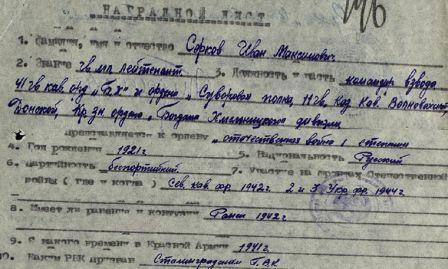 НАГРАДНОЙ ЛИСТ
1. Фамилия, имя и отчество Серков Иван Максимович
2. Звание гв. мл. лейтенант 3. Должность и часть командир взвода
41 гв. кав. орд. "БХ" и ордена "Суворова" полка, 11 гв. каз. Кав. Волновахской,
Донской, кр. зн. ордена "Богдана Хмельницкого" дивизии
представляется к ордену "отечественная война" 1 степени
4. Год рождения 1921 г. 5. Национальность Русский
6. Партийность беспартийный. 7. Участие на фронтах Отечественной
войны (где и когда) Сев. кав. фр. 1942 г. 2 и 3 Укр. фр. 1944 г.
8. Имеет ли ранения и контузии Ранен 1942 г.
9. С какого времени в Красной Армии 1941 г.
10. Каким РВК призван Сталинградским